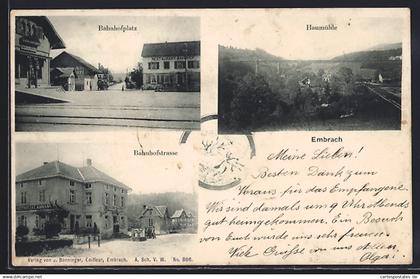 Bahnhofplatz
Haumühle
Embrach
Bahnhofstrasse
Meine Lieben!
Besten Dank zum
Voraus für das Empfangene.
Wir sind damals um 9 Uhr Abends
gut heimgekommen. Ein Besuch
von Euch würde uns sehr freuen.
Viele Grüsse von uns allen
Olga.
Verlag von J. Bänninger, Coiffeur, Embrach. A. Sch. V. W. No. 866.